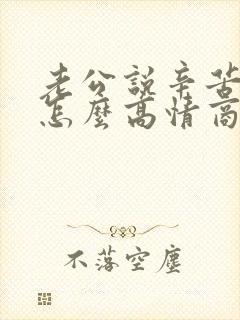 老公說辛苦
怎麼高情商
不落空塵